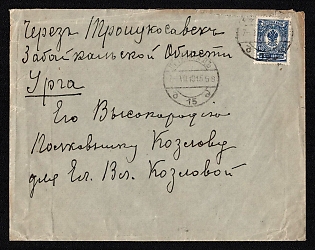 Черезъ Троицкосавскъ
Забайкальской Области
Урга
Его Высокородію
Полковнику Козлову
для Ел. Вл. Козловой
15